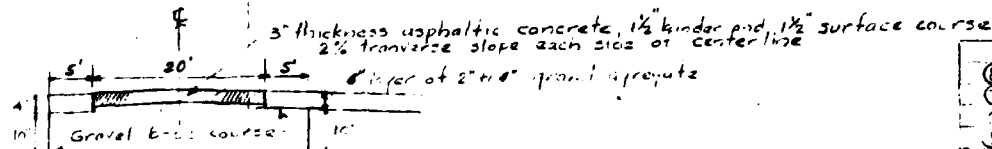 ℄
3" thickness asphaltic concrete, 1½" binder and, 1½" surface course
2% tranverse slope each side of center line
5' 20' 5'
layer of 2" to
4"
10" Gravel course 10"